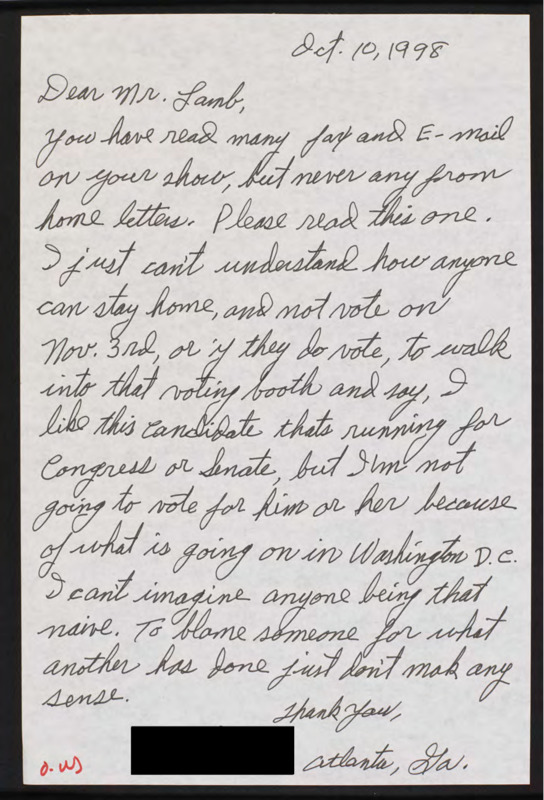 Oct. 10, 1998
Dear Mr. Lamb,
You have read many fax and E-mail
on your show, but never any from
home letters. Please read this one.
I just can't understand how anyone
can stay home, and not vote on
Nov. 3rd, or if they do vote, to walk
into that voting booth and say, I
like this candidate thats running for
Congress or Senate, but I'm not
going to vote for him or her because
of what is going on in Washington D.C.
I cant imagine anyone being that
naive. To blame someone for what
another has done just don't mak any
sense.
Thank You,
Atlanta, Ga.